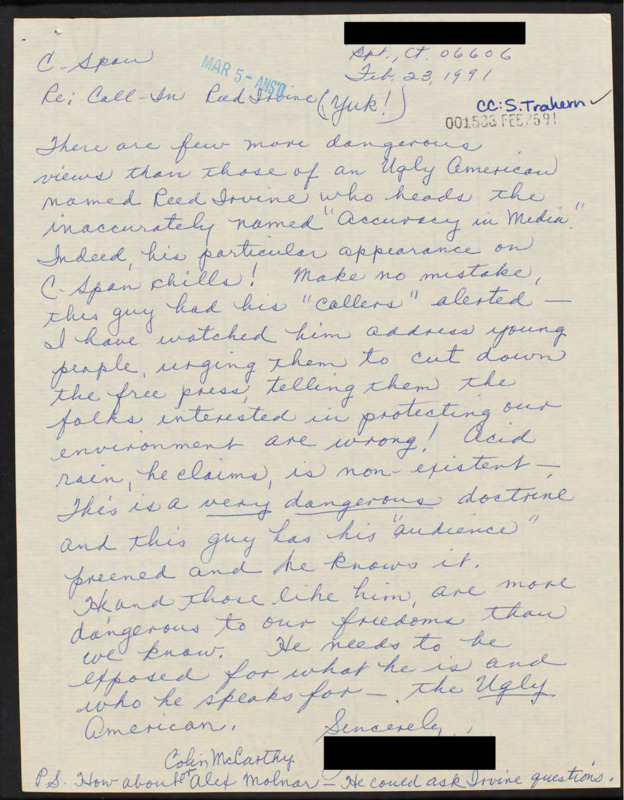 Bpt., Ct. 06606
C-Span
MAR 5 - ANS'D
Feb. 23, 1991
Re: Call-In Reed Irvine (Yuk!)
CC: S. Trahern ✓
001503 FEB2591
There are few more dangerous
views than those of an Ugly American
named Reed Irvine who heads the
inaccurately named "Accuracy in Media."
Indeed, his particular appearance on
C-Span chills! Make no mistake,
this guy had his "callers" alerted —
I have watched him address young
people, urging them to cut down
the free press, telling them the
folks interested in protecting our
environment are wrong! Acid
rain, he claims, is non-existent —
This is a very dangerous doctrine
and this guy has his "audience"
preened and he knows it.
He and those like him, are more
dangerous to our freedoms than
we know. He needs to be
exposed for what he is and
who he speaks for — the Ugly
American.
Sincerely,
Colin McCarthy
P.S. How about or Alex Molnar — He could ask Irvine questions.